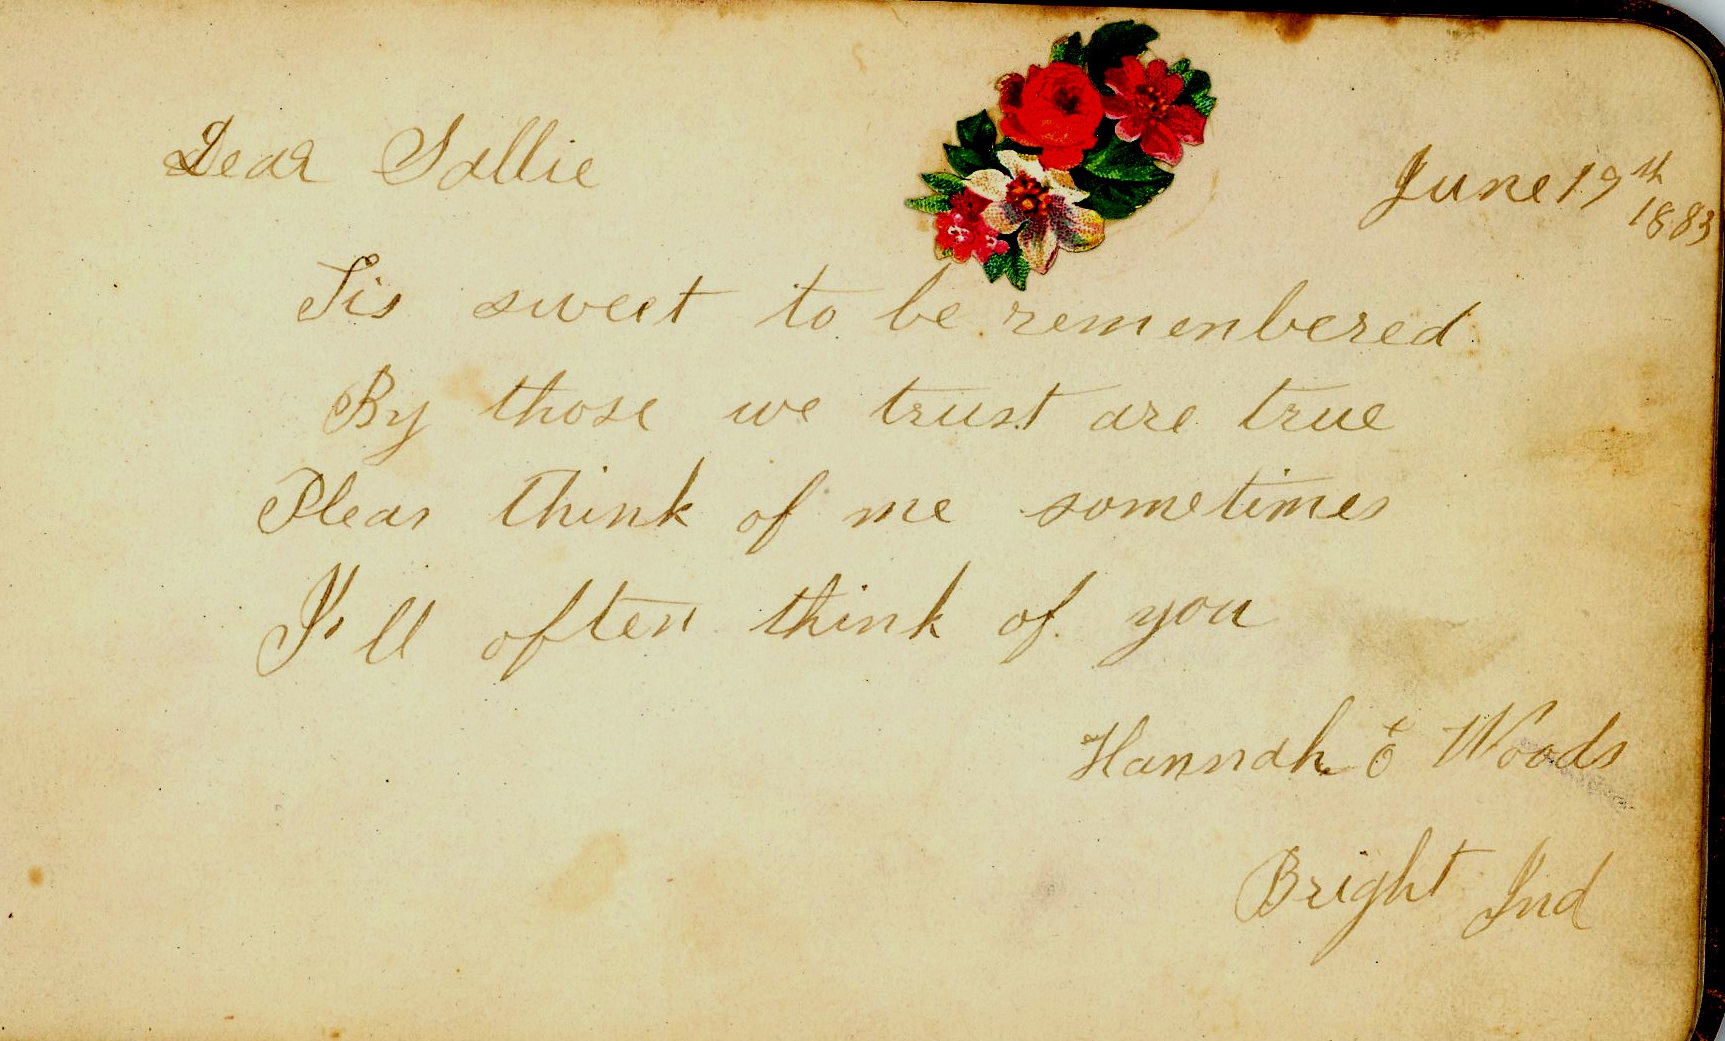 Dear Sallie
June 19th
1883
Tis sweet to be remenbered
By those we trust are true
Pleas think of me sometimes
I'll often think of you
Hannah Woods
Bright Ind